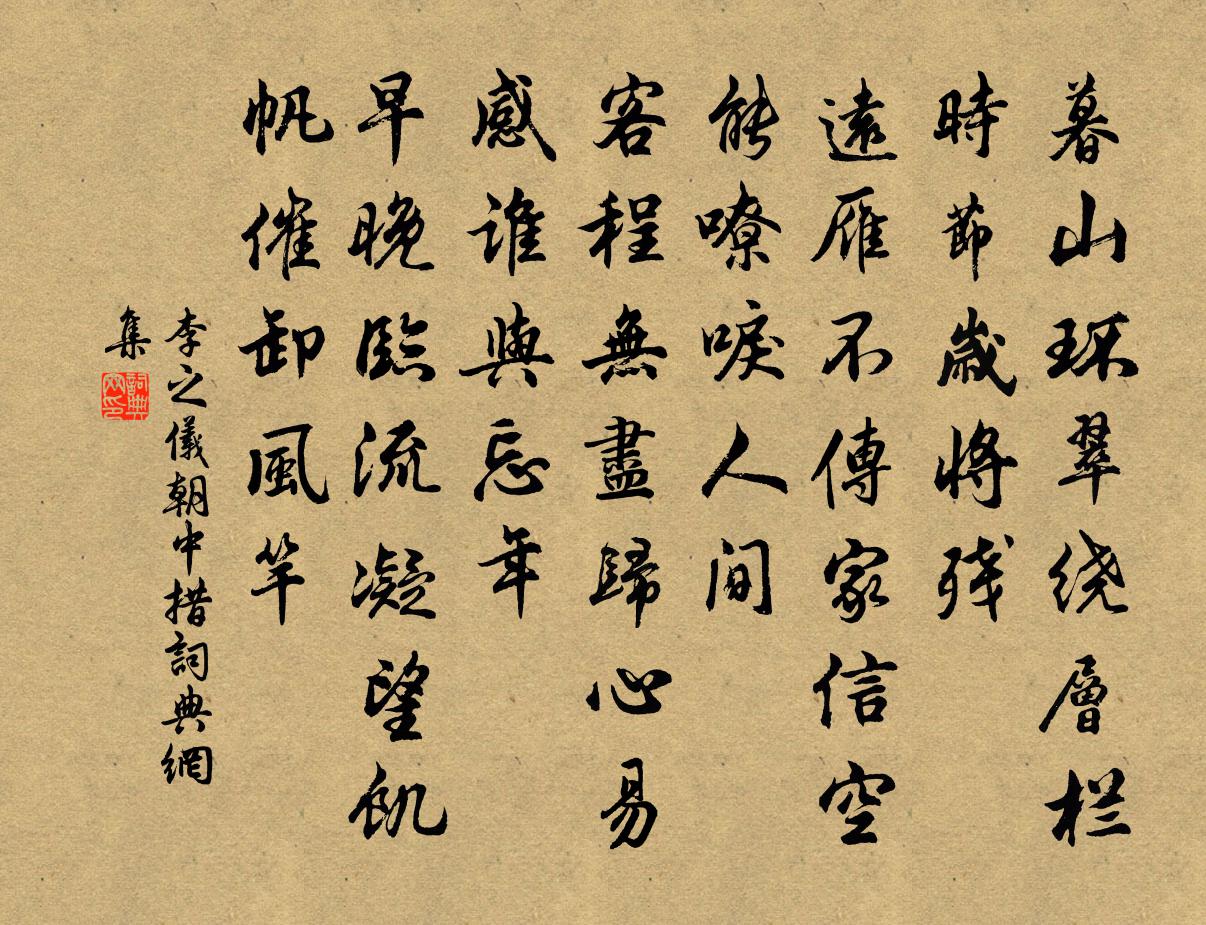 暮山环翠绕層栏
時節歲將残
遠雁不傳家信空
能嘹唳人间
客程無盡歸心易
感誰與忘年
早晚臨流凝望飢
帆催卸風竿
李之儀朝中措詞典網
集
詞典网印